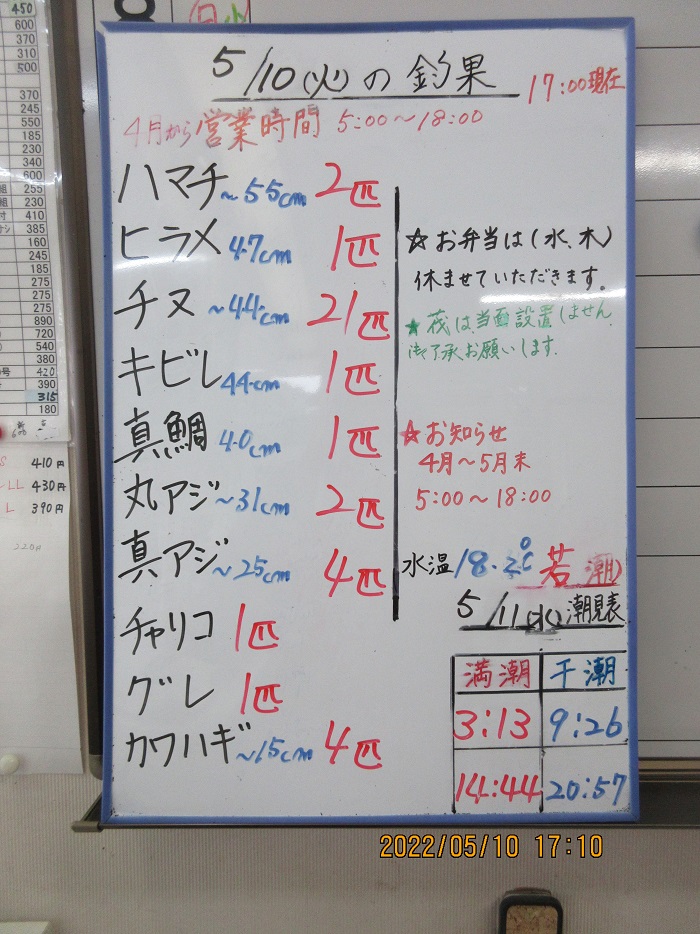 5/10(火)の釣果
17:00現在
4月から営業時間 5:00〜18:00
ハマチ ~55cm 2匹
ヒラメ 47cm 1匹
チヌ ~44cm 21匹
キビレ 44cm 1匹
真鯛 40cm 1匹
丸アジ ~31cm 2匹
真アジ ~25cm 4匹
チャリコ 1匹
グレ 1匹
カワハギ ~15cm 4匹
☆お弁当は(水、木)
休ませていただきます。
★筏は当面設置しません
御了承お願いします.
☆お知らせ
4月〜5月末
5:00〜18:00
水温 18.2℃ 若潮
5/11(水)潮見表
満潮 干潮
3:13 9:26
14:44 20:57
450
600
370
310
500
370
245
550
185
230
340
600
255
230
410
385
160
245
185
275
275
890
720
540
380
420
390
315
180
410円
LL 430円
L 390円
220円
2022/05/10 17:10